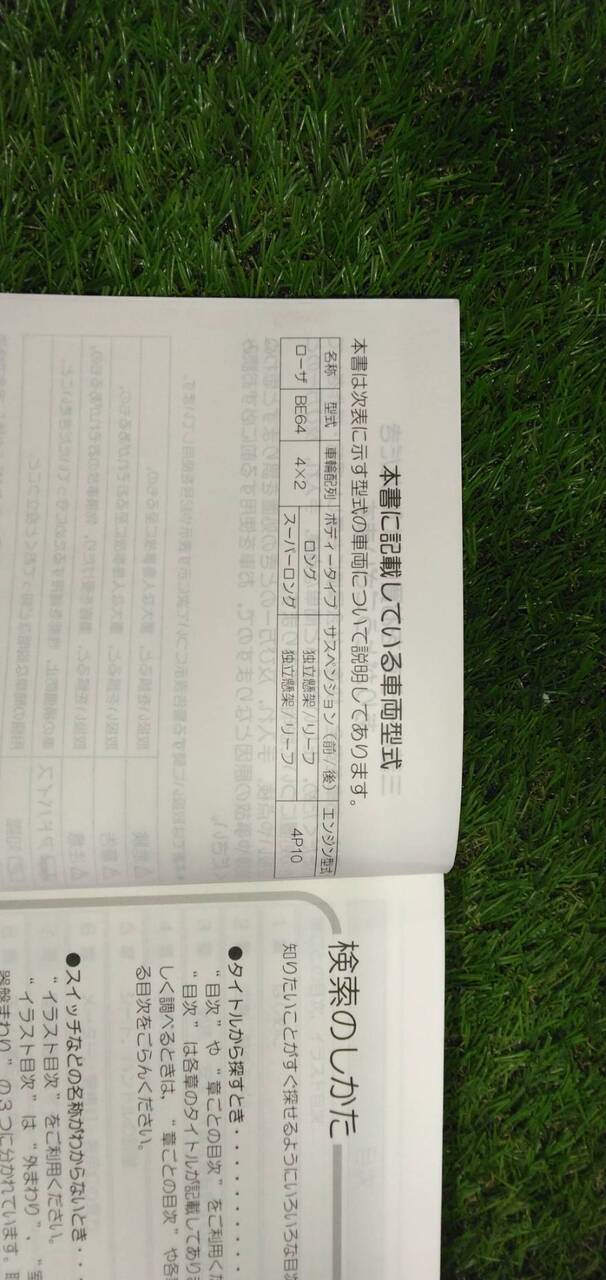 本書に記載している車両型式
本書は次表に示す型式の車両について説明してあります。
名称 型式 車輪配列 ボディータイプ サスペンション（前/後） エンジン型式
ローザ BE64 4×2 ロング 独立懸架/リーフ 4P10
スーパーロング 独立懸架/リーフ
検索のしかた
知りたいことがすぐ探せるようにいろいろな目次
●タイトルから探すとき・・・・・・・・・・
“目次”や“章ごとの目次”をご利用くだ
“目次”は各章のタイトルが記載してありま
しく調べるときは、“章ごとの目次”や各
る目次をごらんください。
●スイッチなどの名称がわからないとき・・・
“イラスト目次”をご利用ください。
“イラスト目次”は“外まわり”、“室
器盤まわり”の3つに分かれています。